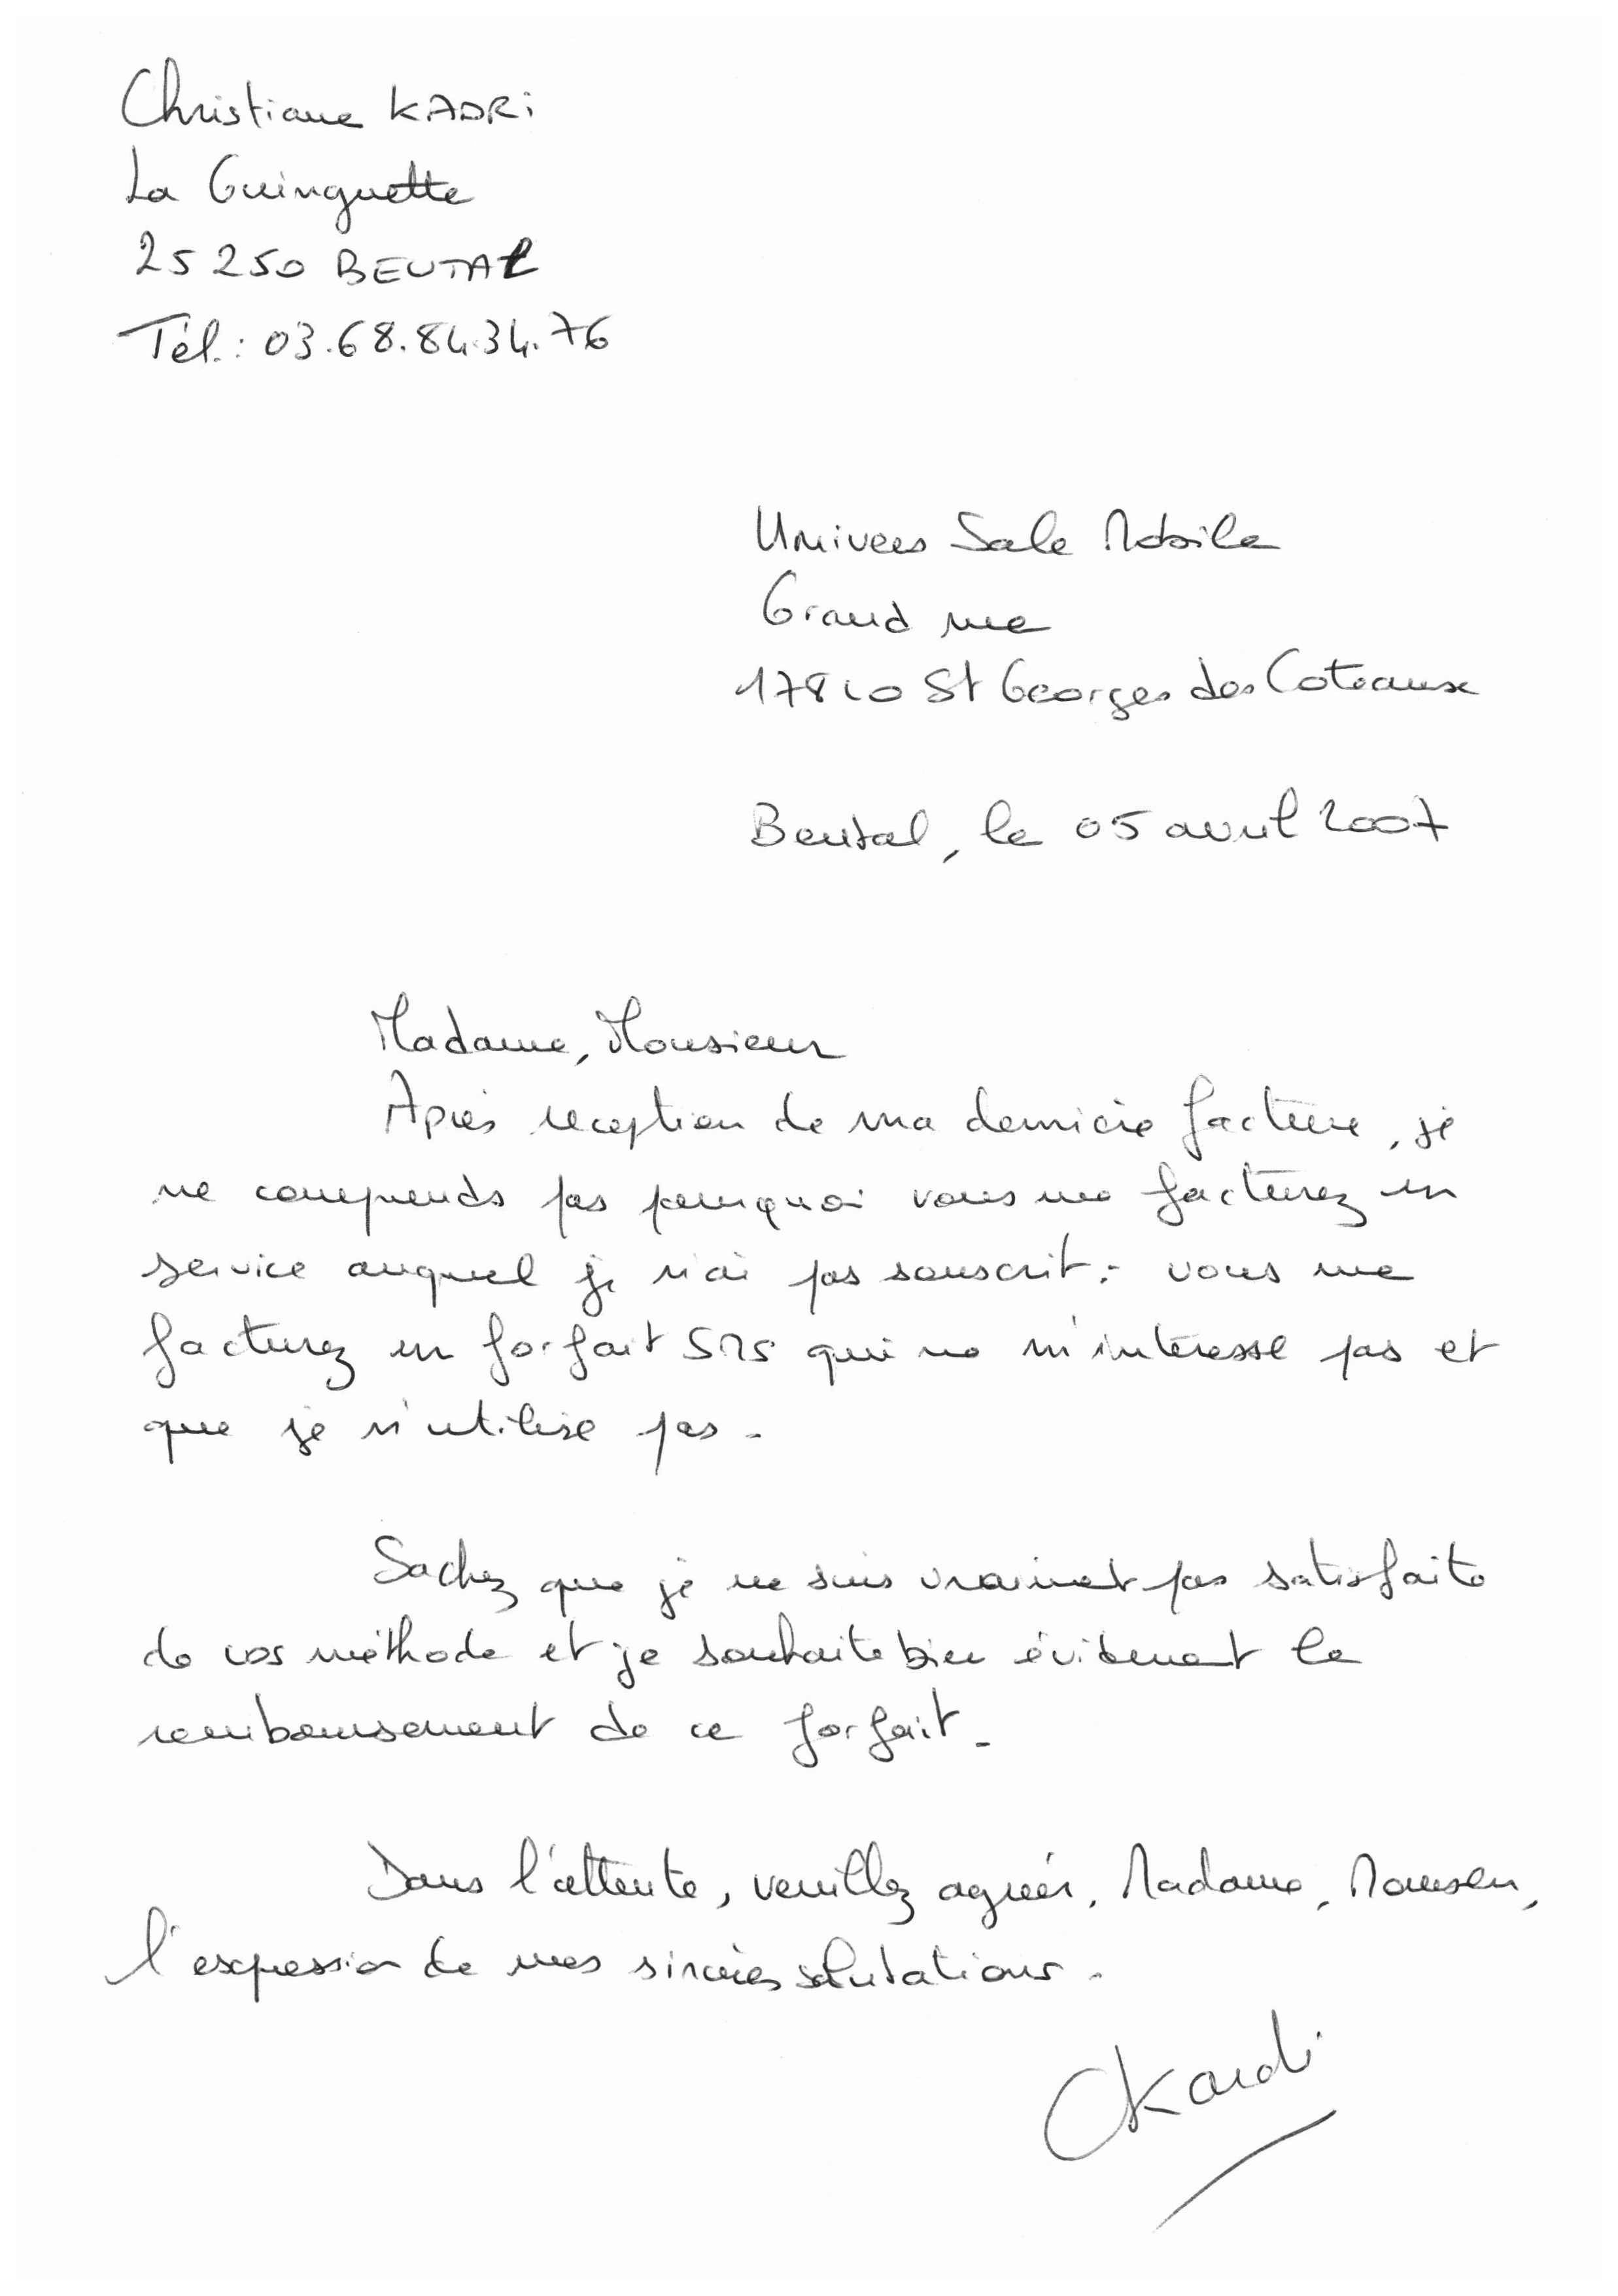 Christiane KADRi
La Guinguette
25 250 BEUTAL
Tél.: 03.68.84.34.76
Univers Sale Mobile
Grand rue
17810 St Georges des Coteaux
Beutal, le 05 avril 2007
Madame, Monsieur
Après reception de ma dernière facture, je
ne comprends pas pourquoi vous me facturez un
service auquel je n'ai pas souscrit : vous me
facturez un forfait SMS qui ne m'intéresse pas et
que je n'utilise pas.
Sachez que je ne suis vraiment pas satisfaite
de vos méthode et je souhaite bien évidement le
remboursement de ce forfait.
Dans l'attente, veuillez agréer, Madame, Monsieur,
l'expression de mes sincères salutations.
CKardi